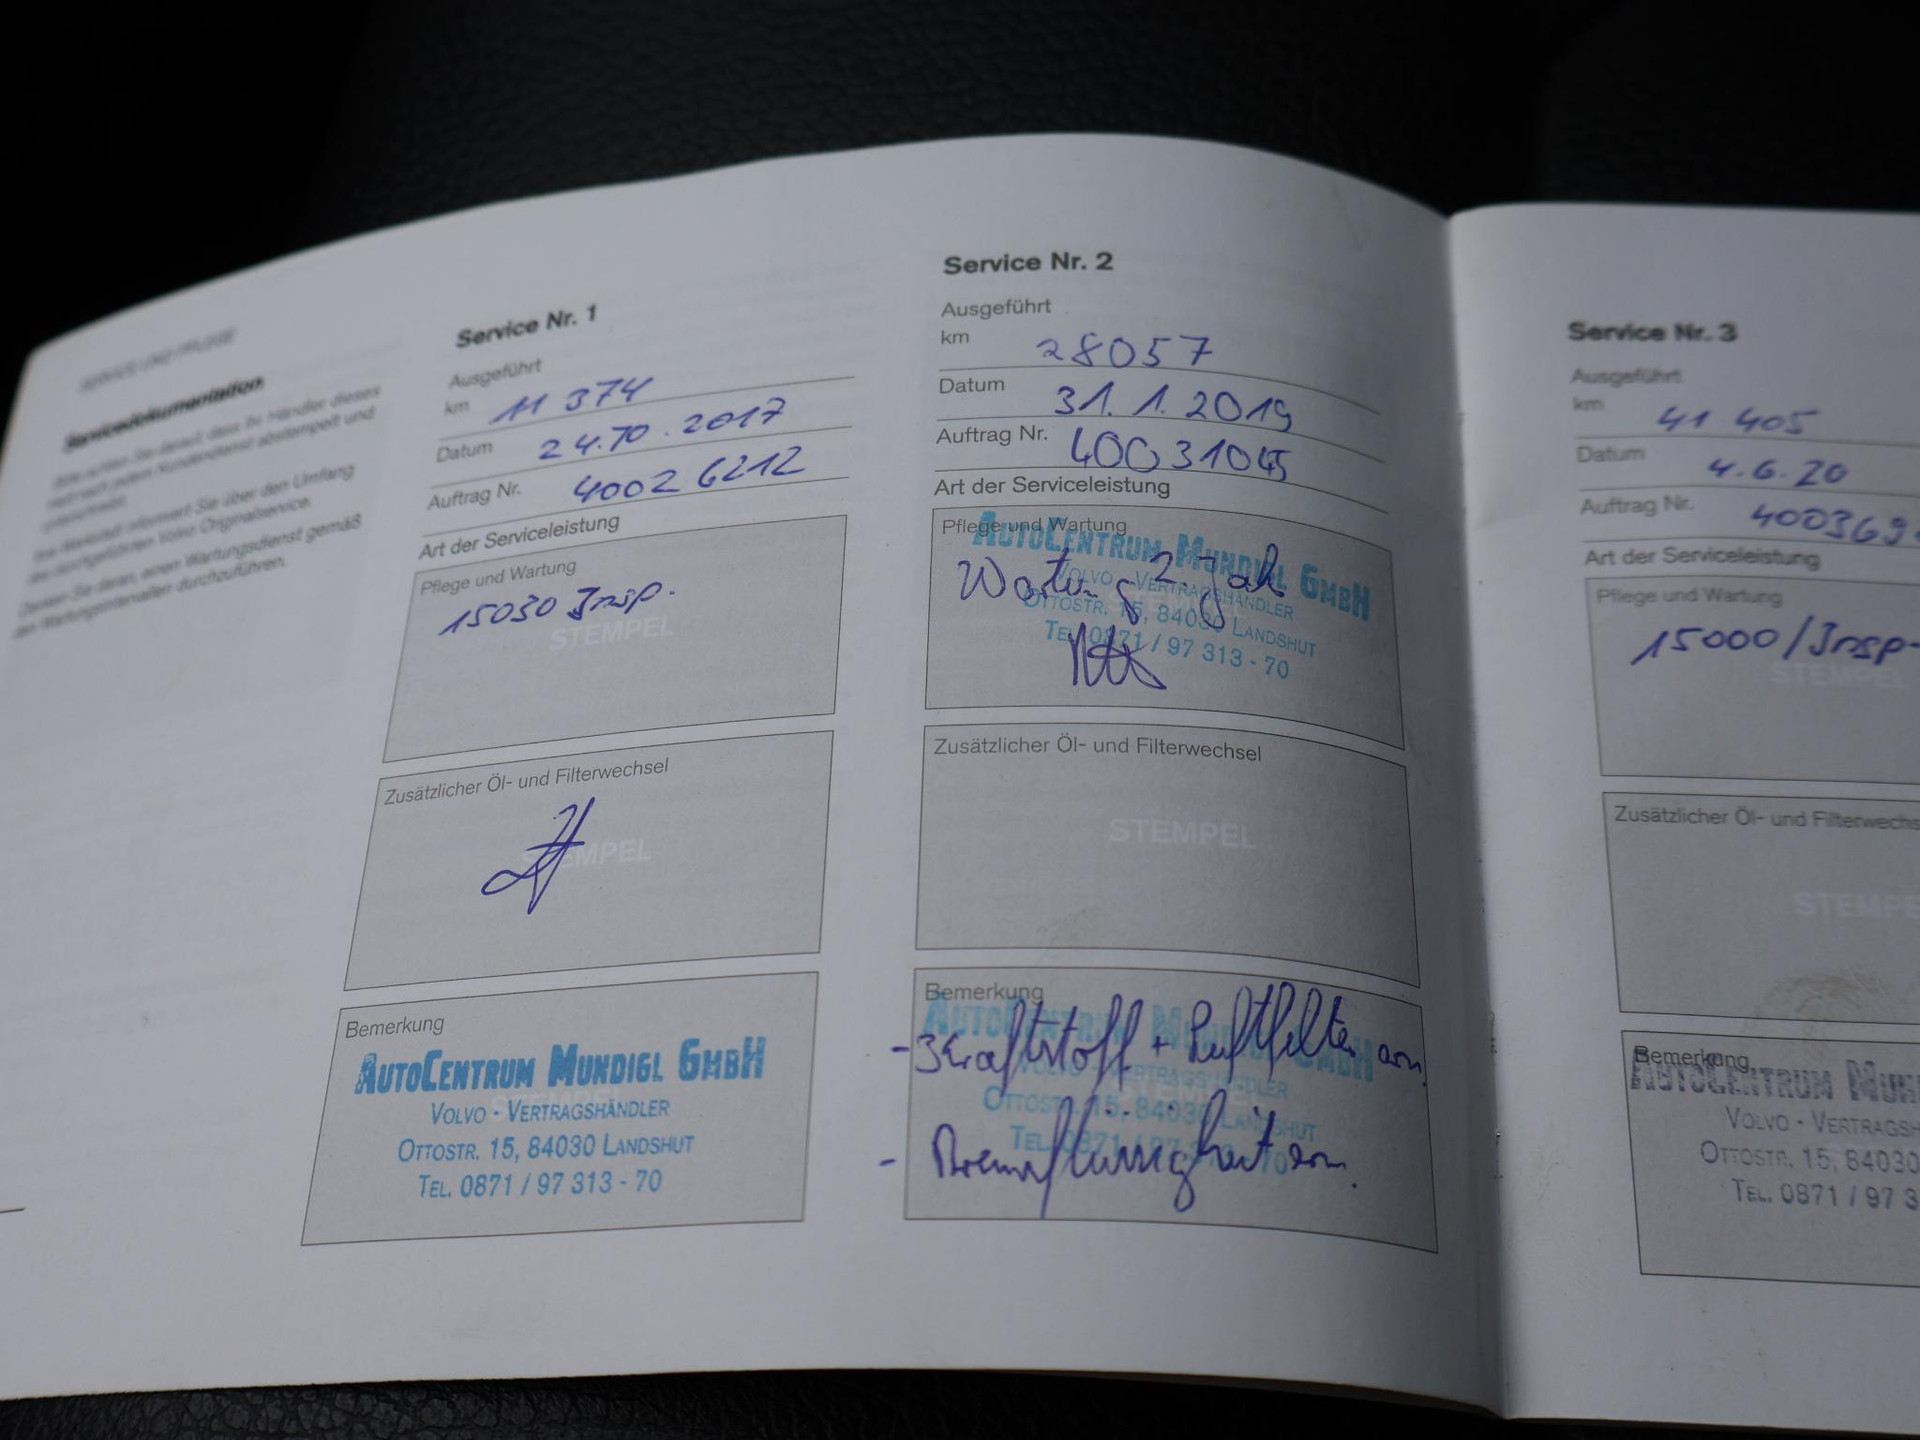 SERVICE UND PFLEGE
Servicedokumentation
Bitte achten Sie darauf, dass Ihr Händler dieses
Heft nach jedem Kundendienst abstempelt und
unterschreibt.
Ihre Werkstatt informiert Sie über den Umfang
des durchgeführten Volvo Originalservice.
Denken Sie daran, einen Wartungsdienst gemäß
den Wartungsintervallen durchzuführen.
Service Nr. 1
Ausgeführt
km 11 374
Datum 24.10.2017
Auftrag Nr. 40026212
Art der Serviceleistung
Pflege und Wartung
15030 Insp.
STEMPEL
Zusätzlicher Öl- und Filterwechsel
STEMPEL
Bemerkung
AUTOCENTRUM MUNDIGL GMBH
VOLVO - VERTRAGSHÄNDLER
OTTOSTR. 15, 84030 LANDSHUT
TEL. 0871 / 97 313 - 70
Service Nr. 2
Ausgeführt
km 28057
Datum 31.1.2019
Auftrag Nr. 40031045
Art der Serviceleistung
Pflege und Wartung
AUTOCENTRUM MUNDIGL GMBH
Wartung 2. Jah
VOLVO - VERTRAGSHÄNDLER
OTTOSTR. 15, 84030 LANDSHUT
TEL. 0871 / 97 313 - 70
Zusätzlicher Öl- und Filterwechsel
STEMPEL
Bemerkung
AUTOCENTRUM MUNDIGL GMBH
- Kraftstoff + Luftfilter ern.
VOLVO - VERTRAGSHÄNDLER
OTTOSTR. 15, 84030 LANDSHUT
TEL. 0871 / 97 313 - 70
- Bremsflüssigkeit ern.
Service Nr. 3
Ausgeführt
km 41 405
Datum 4.6.20
Auftrag Nr. 400369
Art der Serviceleistung
Pflege und Wartung
15000/Insp
STEMPEL
Zusätzlicher Öl- und Filterwechs
STEMPE
Bemerkung
AUTOCENTRUM MUN
VOLVO - VERTRAGSH
OTTOSTR. 15, 84030
TEL. 0871 / 97 3